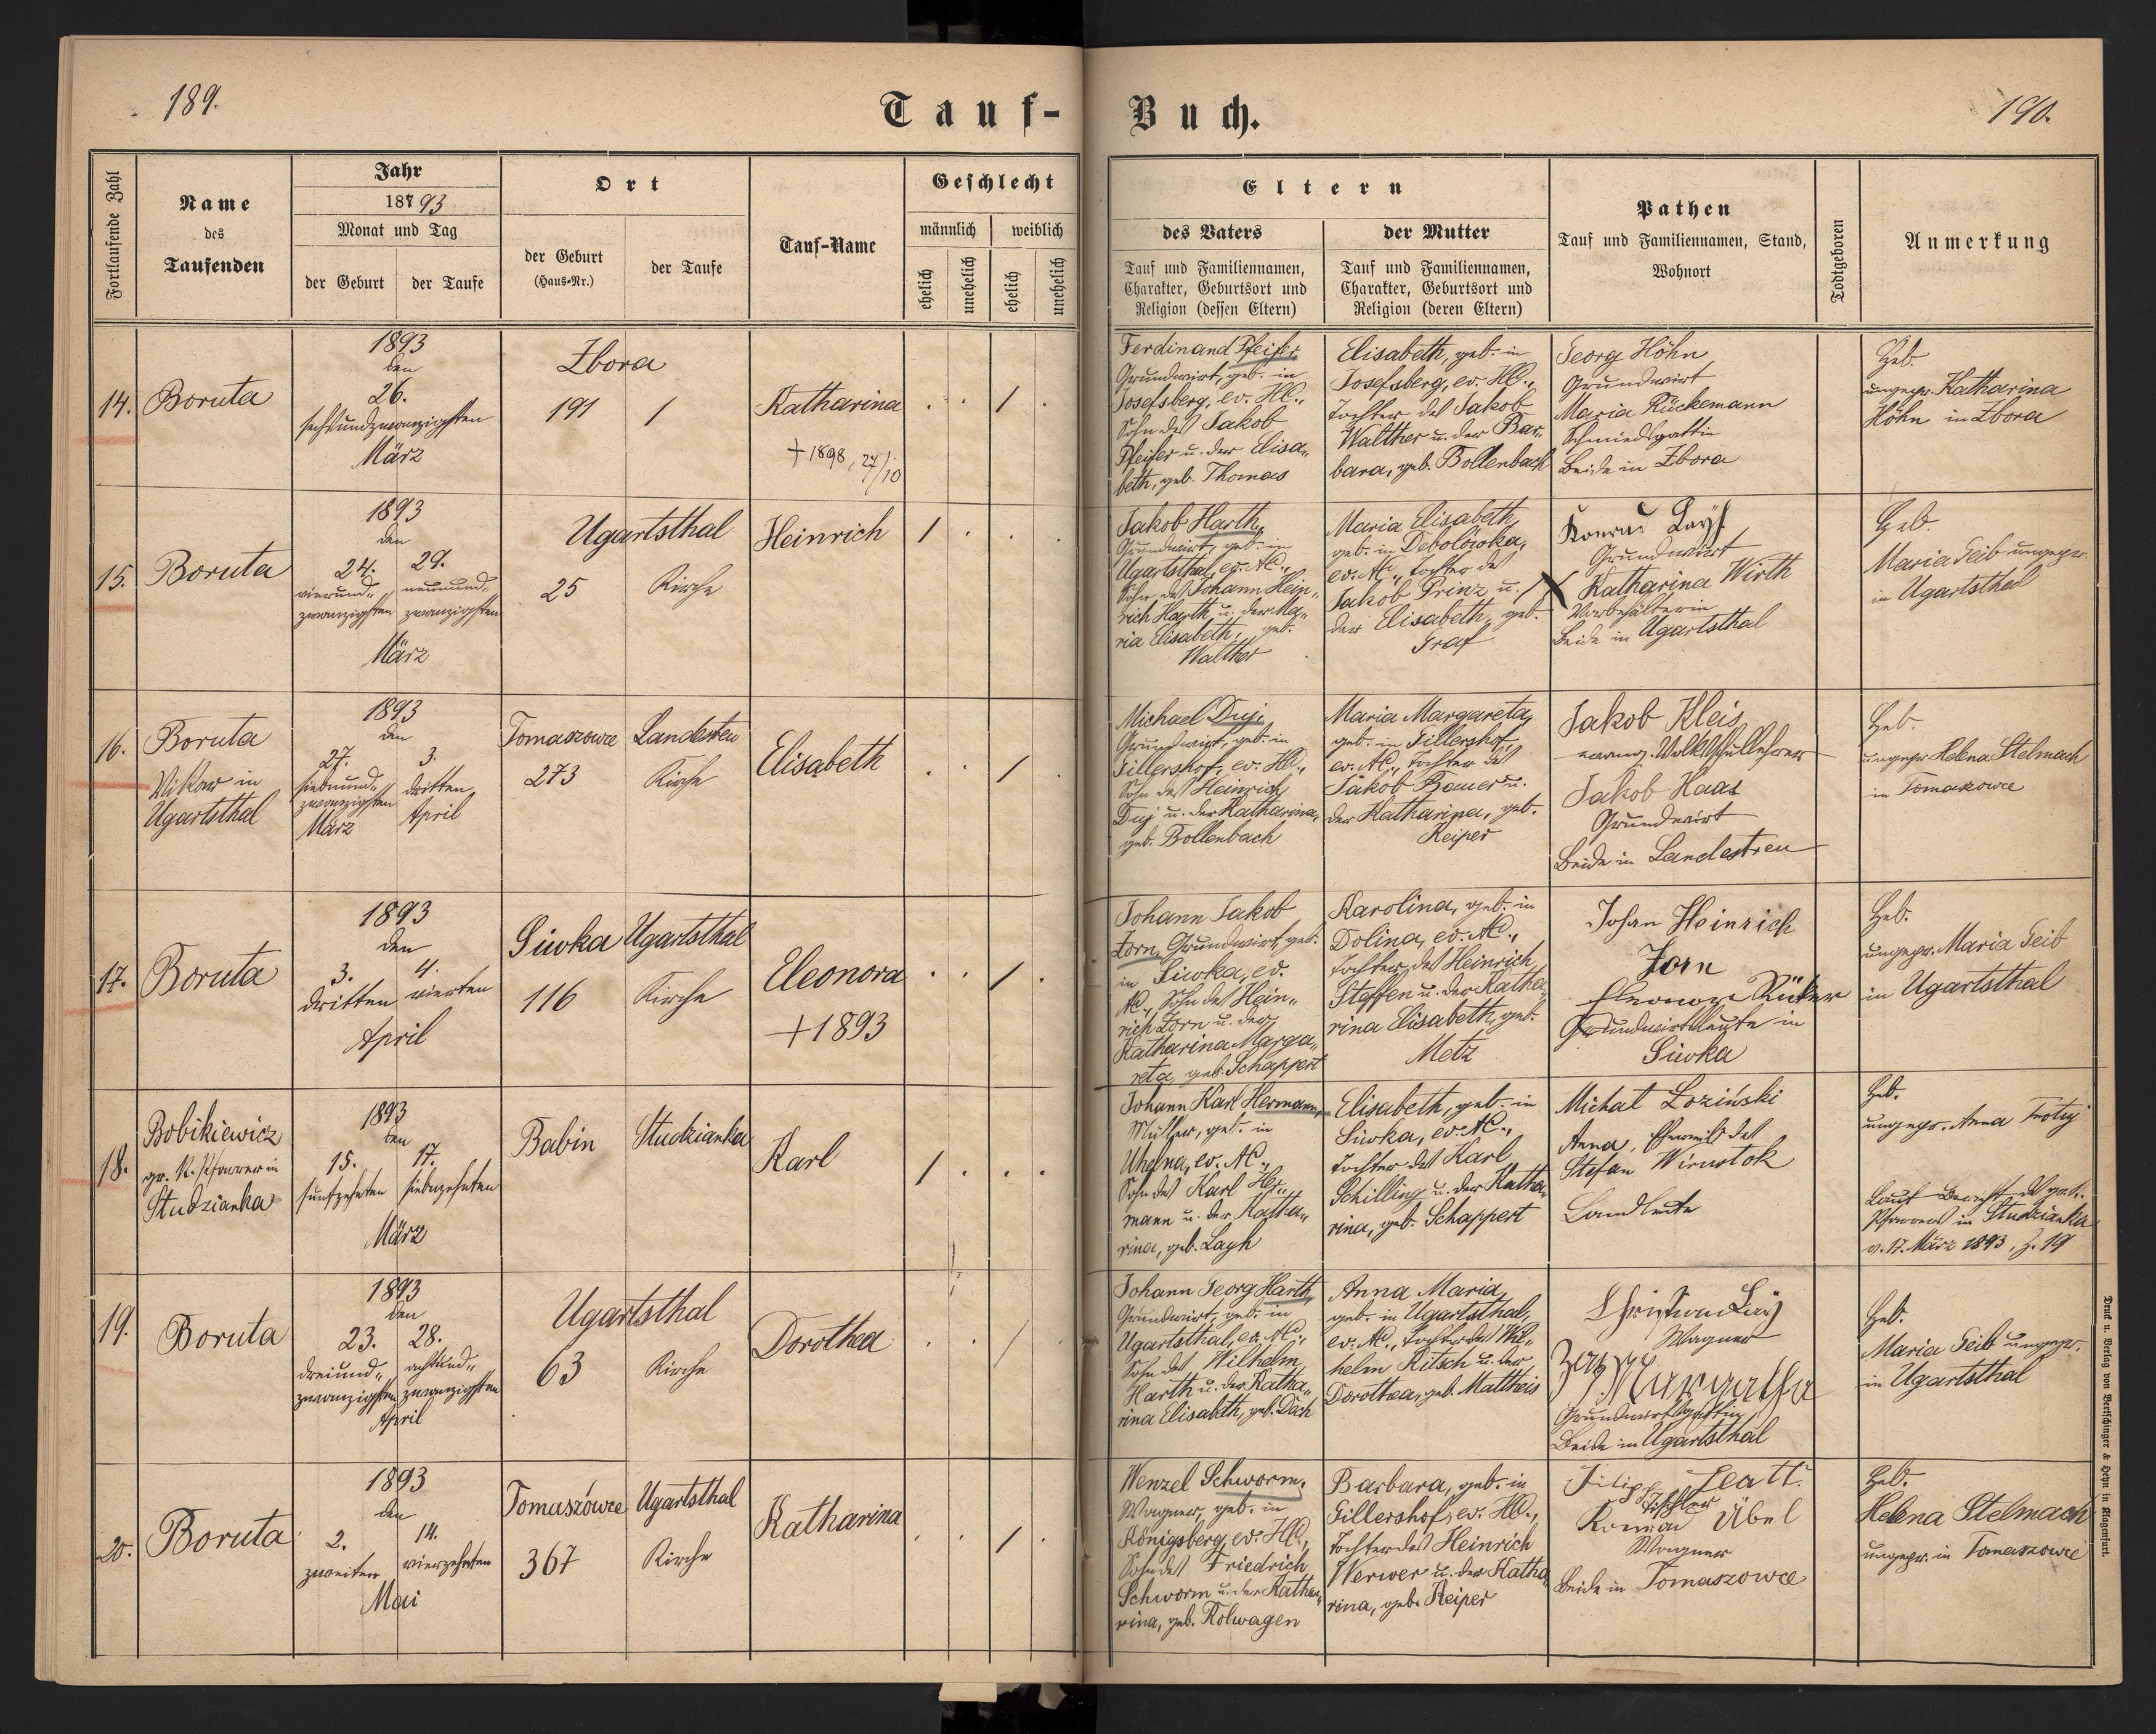 189.
Tauf-
Buch.
190.
Fortlaufende Zahl
Name
des
Taufenden
Jahr
18793
Monat und Tag
der Geburt
der Taufe
Ort
der Geburt
(Haus-Nr.)
der Taufe
Tauf-Name
Geschlecht
männlich
weiblich
ehelich
unehelich
ehelich
unehelich
Eltern
des Vaters
Tauf und Familiennamen,
Charakter, Geburtsort und
Religion (dessen Eltern)
der Mutter
Tauf und Familiennamen,
Charakter, Geburtsort und
Religion (deren Eltern)
Pathen
Tauf und Familiennamen, Stand,
Wohnort
Todtgeboren
Anmerkung
14.
Boruta
1893
den
26.
sechsundzwanzigsten
März
Zbora
191
/
Katharina
+1898, 27/10
/
Ferdinand Pfeifer,
Grundwirt, geb. in
Josefsberg, ev. HC.,
Sohn des Jakob
Pfeifer u. der Elisa„
beth, geb. Thomas
Elisabeth, geb. in
Josefsberg, ev. HC.,
Tochter des Jakob
Walther u. der Bar„
bara, geb. Bollenbach
Georg Höhn
Grundwirt
Maria Rückemann
Schmiedsgattin
Beide in Zbora
Heb.
ungepr. Katharina
Höhn in Zbora
15.
Boruta
1893
den
24.
vierund„
zwanzigsten
29.
neunund„
zwanzigsten
März
Ugartsthal
25
Kirche
Heinrich
/
Jakob Harth,
Grundwirt, geb. in
Ugartsthal, ev. AC.,
Sohn des Johann Hein„
rich Harth u. der Ma„
ria Elisabeth, geb.
Walther
Maria Elisabeth,
geb. in Debolówka,
ev. AC., Tochter des
Jakob Prinz u.
der Elisabeth, geb.
Graf
Konrad
Grundwirt
Katharina Wirth
Vorbehälterin
Beide in Ugartsthal
Heb.
Maria Seib ungepr.
in Ugartsthal
16.
Boruta
Vikar in
Ugartsthal
1893
den
27.
siebenund„
zwanzigsten
März
3.
dritten
April
Tomaszowce
273
Landestreu
Kirche
Elisabeth
/
Michael Duj,
Grundwirt, geb. in
Gillershof, ev. HC.,
Sohn des Heinrich
Duj u. der Katharina,
geb. Bollenbach
Maria Margareta,
geb. in Gillershof,
ev. AC., Tochter des
Jakob Bauer u.
der Katharina, geb.
Keiper
Jakob Kleis
evang. Volksschullehrer
Jakob Haas
Grundwirt
Beide in Landestreu
Heb.
ungepr. Helena Stelmach
in Tomaszowce
17.
Boruta
1893
den
3.
dritten
4.
vierten
April
Siwka
116
Ugartsthal
Kirche
Eleonora
+1893
/
Johann Jakob
Zorn, Grundwirt, geb.
in Siwka, ev.
AC., Sohn des Hein„
rich Zorn u. der
Katharina Marga„
reta, geb. Schappert
Karolina, geb. in
Dolina, ev. AC.,
Tochter des Heinrich
Steffen u. der Katha„
rina Elisabeth, geb.
Metz
Johan Heinrich
Zorn
Eleonore Rüker
Grundwirtsleute in
Siwka
Heb.
ungepr. Maria Seib
in Ugartsthal
18.
Bobikiewicz
gr. K. Pfarrer in
Studzianka
1893
den
15.
funfzehnten
17.
siebzehnten
März
Babin
Studzianka
Karl
/
Johann Karl Hermann,
Müller, geb. in
Uhelna, ev. AC.,
Sohn des Karl Her„
mann u. der Katha„
rina, geb. Layh
Elisabeth, geb. in
Siwka, ev. AC.,
Tochter des Karl
Schilling u. der Katha„
rina, geb. Schappert
Michał Łoziński
Anna, Eheweib des
Stefan Winnstok
Landleute
Heb.
ungepr. Anna
Laut Bericht des gr. k.
Pfarrers in Studzianka
v. 17. März 1893, Z. 19
19.
Boruta
1893
den
23.
dreiund„
zwanzigsten
28.
achtund„
zwanzigsten
April
Ugartsthal
63
Kirche
Dorothea
/
Johann Georg Harth,
Grundwirt, geb. in
Ugartsthal, ev. AC.,
Sohn des Wilhelm
Harth u. der Katha„
rina Elisabeth, geb. Dach
Anna Maria,
geb. in Ugartsthal,
ev. AC., Tochter des Wil„
helm Ritsch u. der
Dorothea, geb. Mattheis
Christian
Wagner
Margaretha
Grundwirtsgattin
Beide in Ugartsthal
Heb.
Maria Seib ungepr.
in Ugartsthal
20.
Boruta
1893
den
2.
zweiten
14.
vierzehnten
Mai
Tomaszówce
367
Ugartsthal
Kirche
Katharina
/
Wenzel Schworm,
Wagner, geb. in
Königsberg, ev. HC.,
Sohn des Friedrich
Schworm u. der Katha„
rina, geb. Rolwagen
Barbara, geb. in
Gillershof, ev. HC.,
Tochter des Heinrich
Werwer u. der Katha„
rina, geb. Keiper
Filipp
Tischler
Konrad Übel
Wagner
Beide in Tomaszowce
Heb.
Helena Stelmach
ungepr. in Tomaszowce
Druck u. Verlag von Bertschinger & Heyn in Klagenfurt.